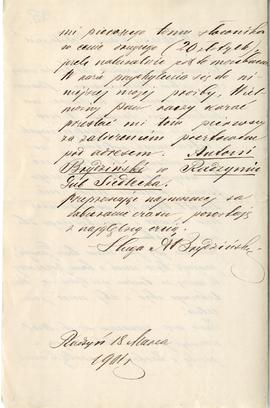 mi pierwszego tomu słownika
w cenie drugiego (20 złotych,
jest naturalnie
W razie przychylenia się do ni-
niejszej mojej prośby,
Pan raczy
przesłać mi tom pierwszy
za zaliczeniem pocztowem
pod adresem: Antoni
Brydziński w Radzyniu
Gub Siedlecka.
Przepraszając najmocniej za
zabieranie czasu, pozostaję
z najgłębszą czcią,
Sługa A Brydziński
Radzyń 18 Marca
1901 r